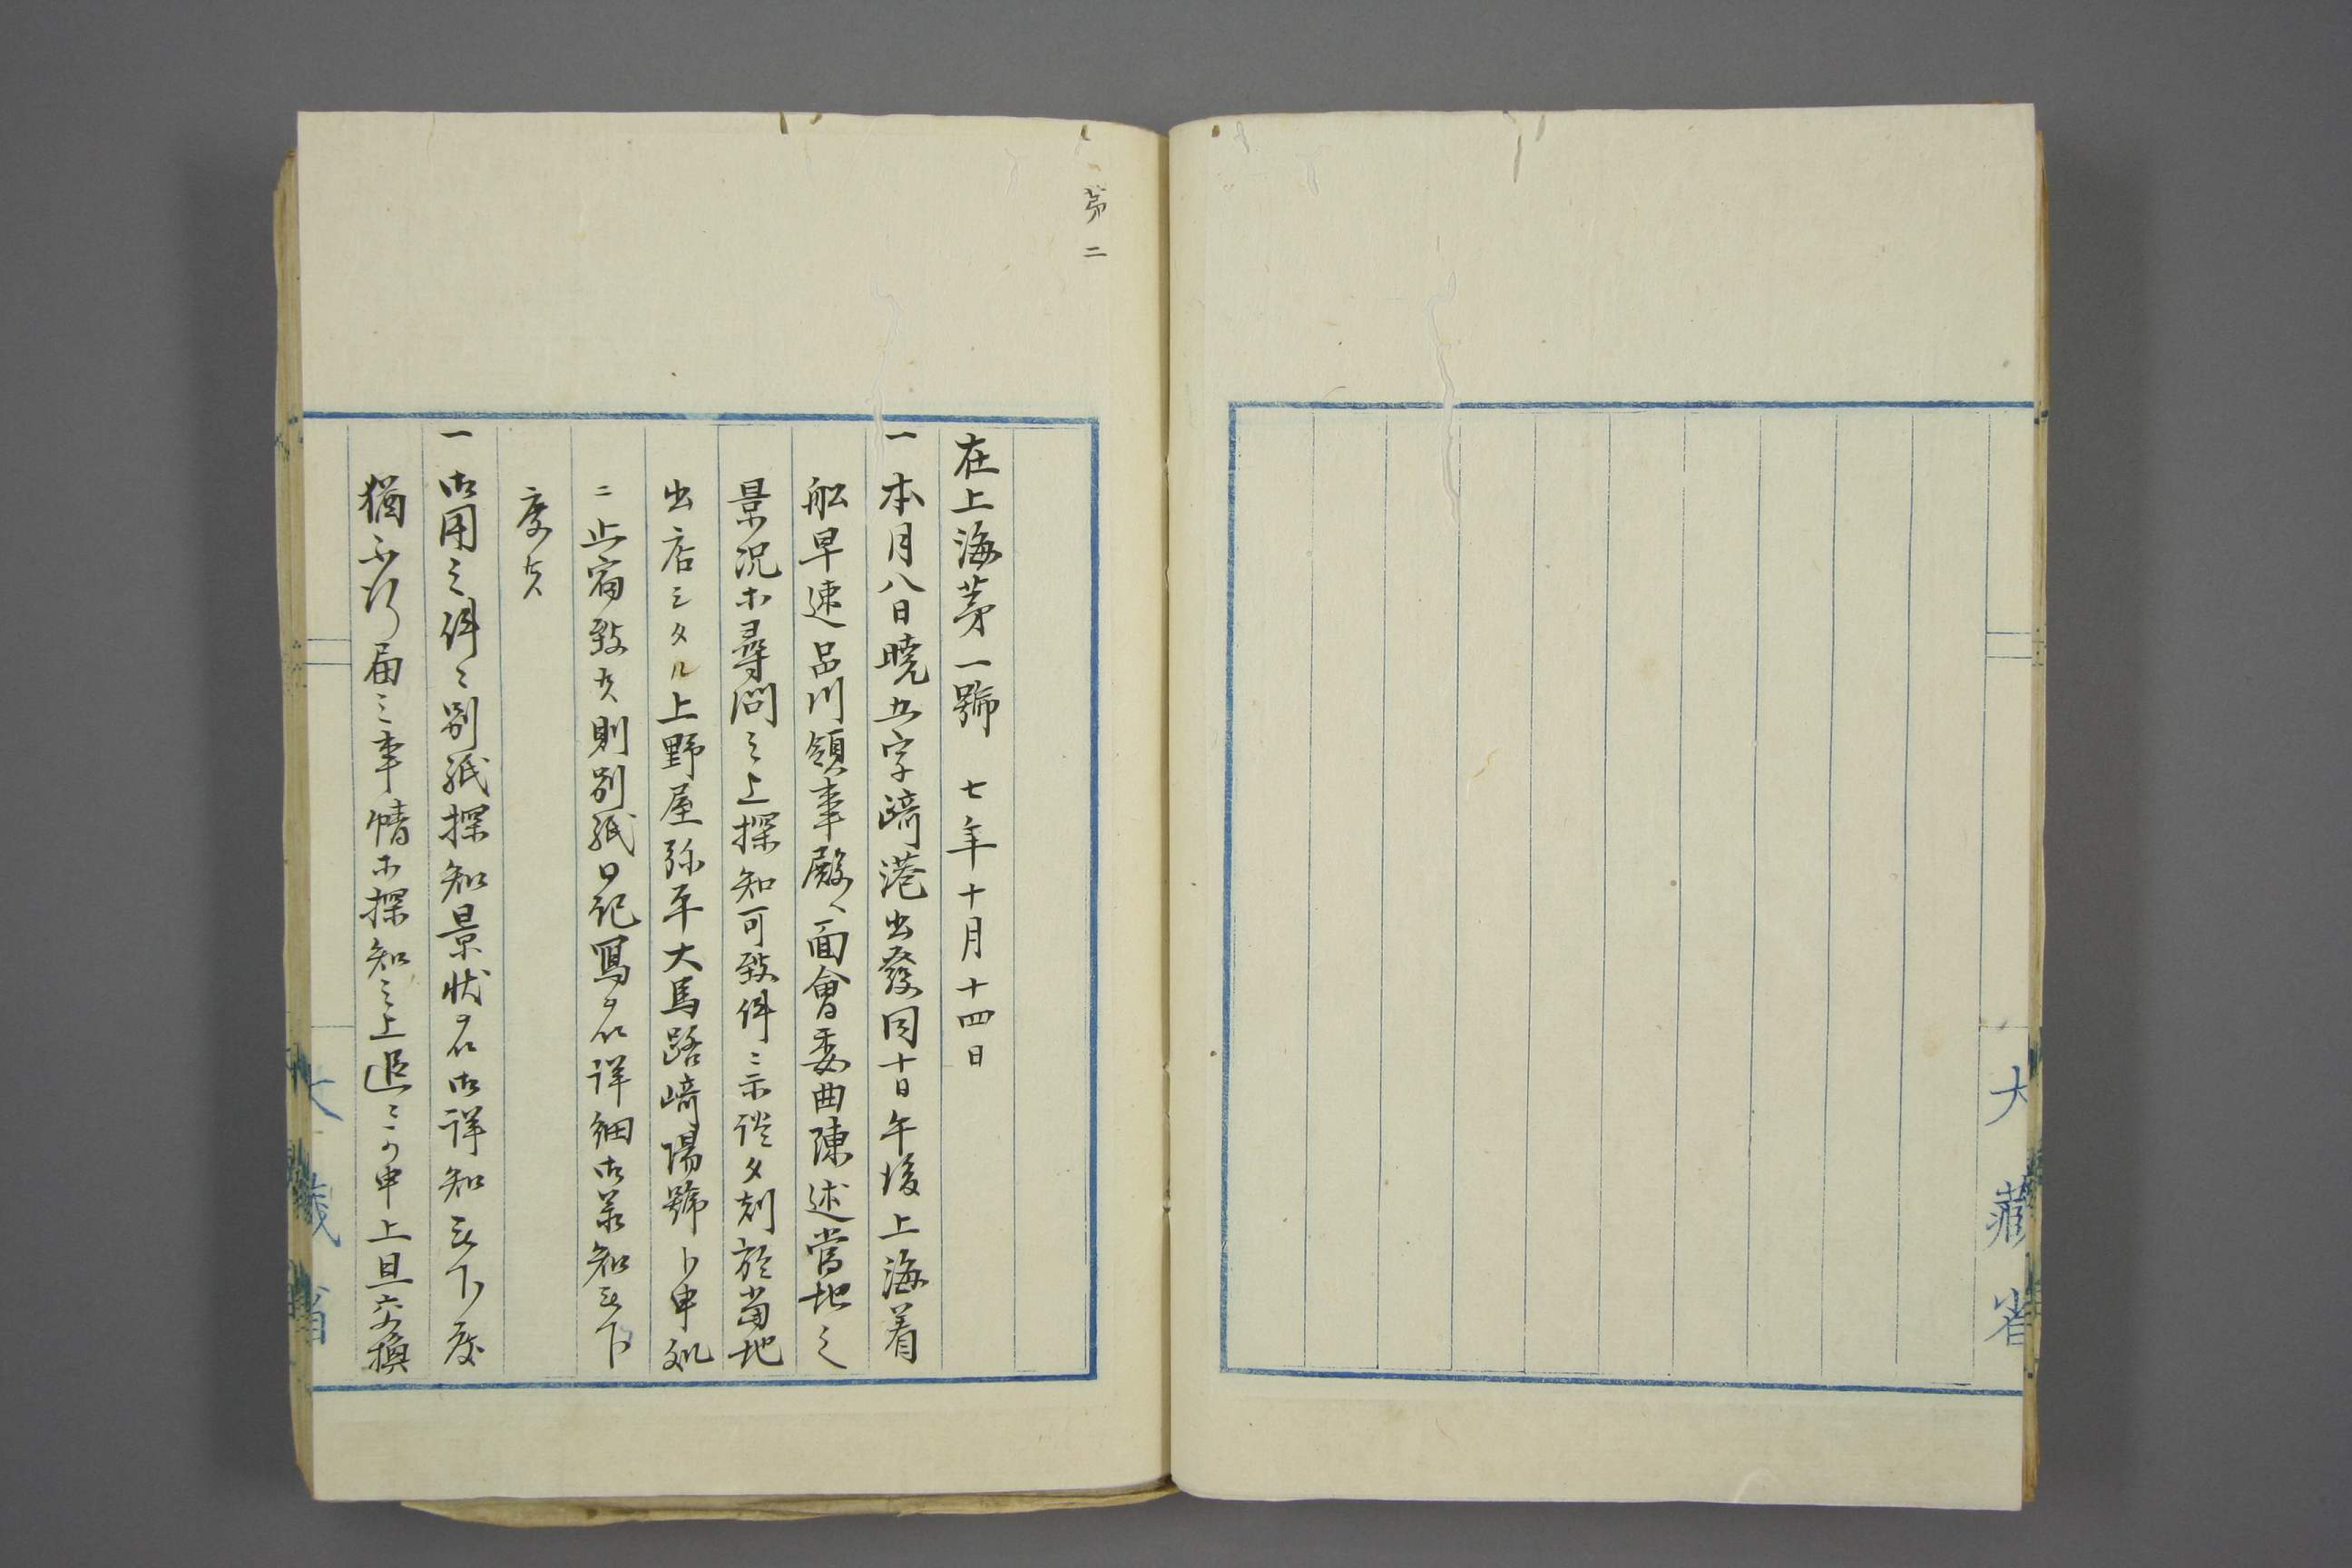 大藏省
第二
在上海第一號 七年十月十四日
一本月八日曉五字崎港出發同十日午後上海着
舩早速品川領事殿ヘ面會委曲陳述當地之
景況等尋問之上探知可致件ニ示談夕刻於當地
出店シタル上野屋弥平大馬路崎陽號ト申処
ニ止宿致候則別紙日記寫ヲ以詳細御承知被下
度候
一御用之件ミ別紙探知景状ヲ以御詳知被下度
猶不行届之事情等探知之上追ミ可申上且交換